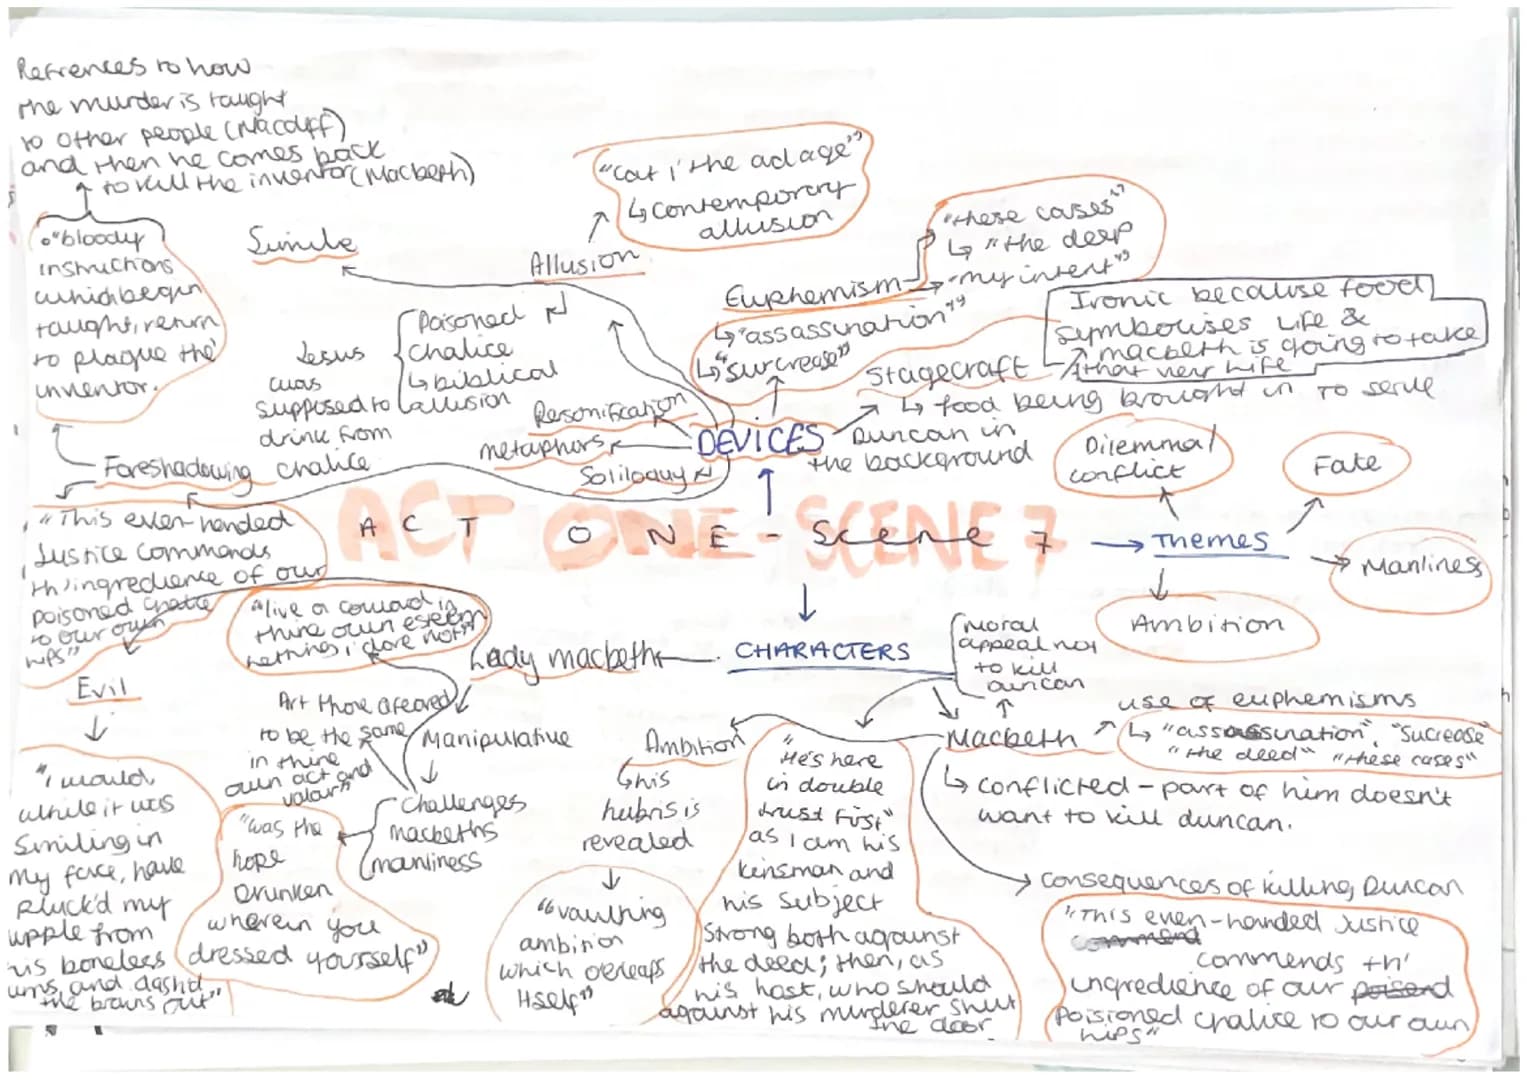 Refrences to how
the murder is taught
to other people (Macduff)
and then he comes back
to kill the inventor (Macbeth)
"bloody
instructions
which begin
taught, return
to plague the
inventor.
Simile
"cat i' the adage"
↳ contemporary
allusion
Allusion
Euphemism
"these cases"
↳ "the deep
"my intent"
↳ "assassination"
↳ "surcrease"
Ironic because food
symbolises life &
macbeth is going to take
that very life
Stagecraft
↳ food being brought in to serve
Duncan in
the background
Poisoned
chalice
↳ biblical
allusion
Jesus
was
supposed to
drink from
chalice
Personification
metaphors
Soliloquy
DEVICES
Foreshadowing
"This even-handed
Justice commands
th' ingredience of our
poisoned chalice
to our own
lips"
ACT ONE - Scene 7
Themes
Dilemma/
conflict
Fate
Manliness
Ambition
CHARACTERS
Lady macbeth
"live a coward in
thine own esteem
letting, i dare not"
Evil
"I would,
while it was
smiling in
my face, have
pluck'd my
nipple from
his boneless
gums, and dash'd
the brains out"
Art thou afeared
to be the same
in thine
own act and
valour"
Manipulative
Challenges
macbeths
manliness
"was the
hope
Drunken
wherein you
dressed yourself"
Ambition
↳ his
hubris is
revealed
"vaulting
ambition
which overleaps
itself"
"He's here
in double
trust first"
as I am his
kinsman and
his subject
strong both against
the deed; then, as
his host, who should
against his murderer shut
the door
moral
appeal not
to kill
duncan
Macbeth
use of euphemisms
↳ "assassination", "sucrease"
"the deed" "these cases"
↳ conflicted - part of him doesn't
want to kill duncan.
consequences of killing Duncan
"This even-handed Justice
commends th'
ingredience of our
poisioned chalice to our own
lips"